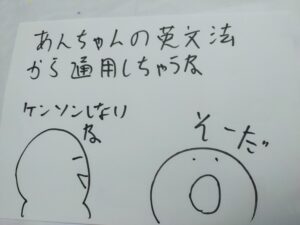 あんちゃんの英文法
から通用しちゃうな
ケンソンしない
な
そーだ